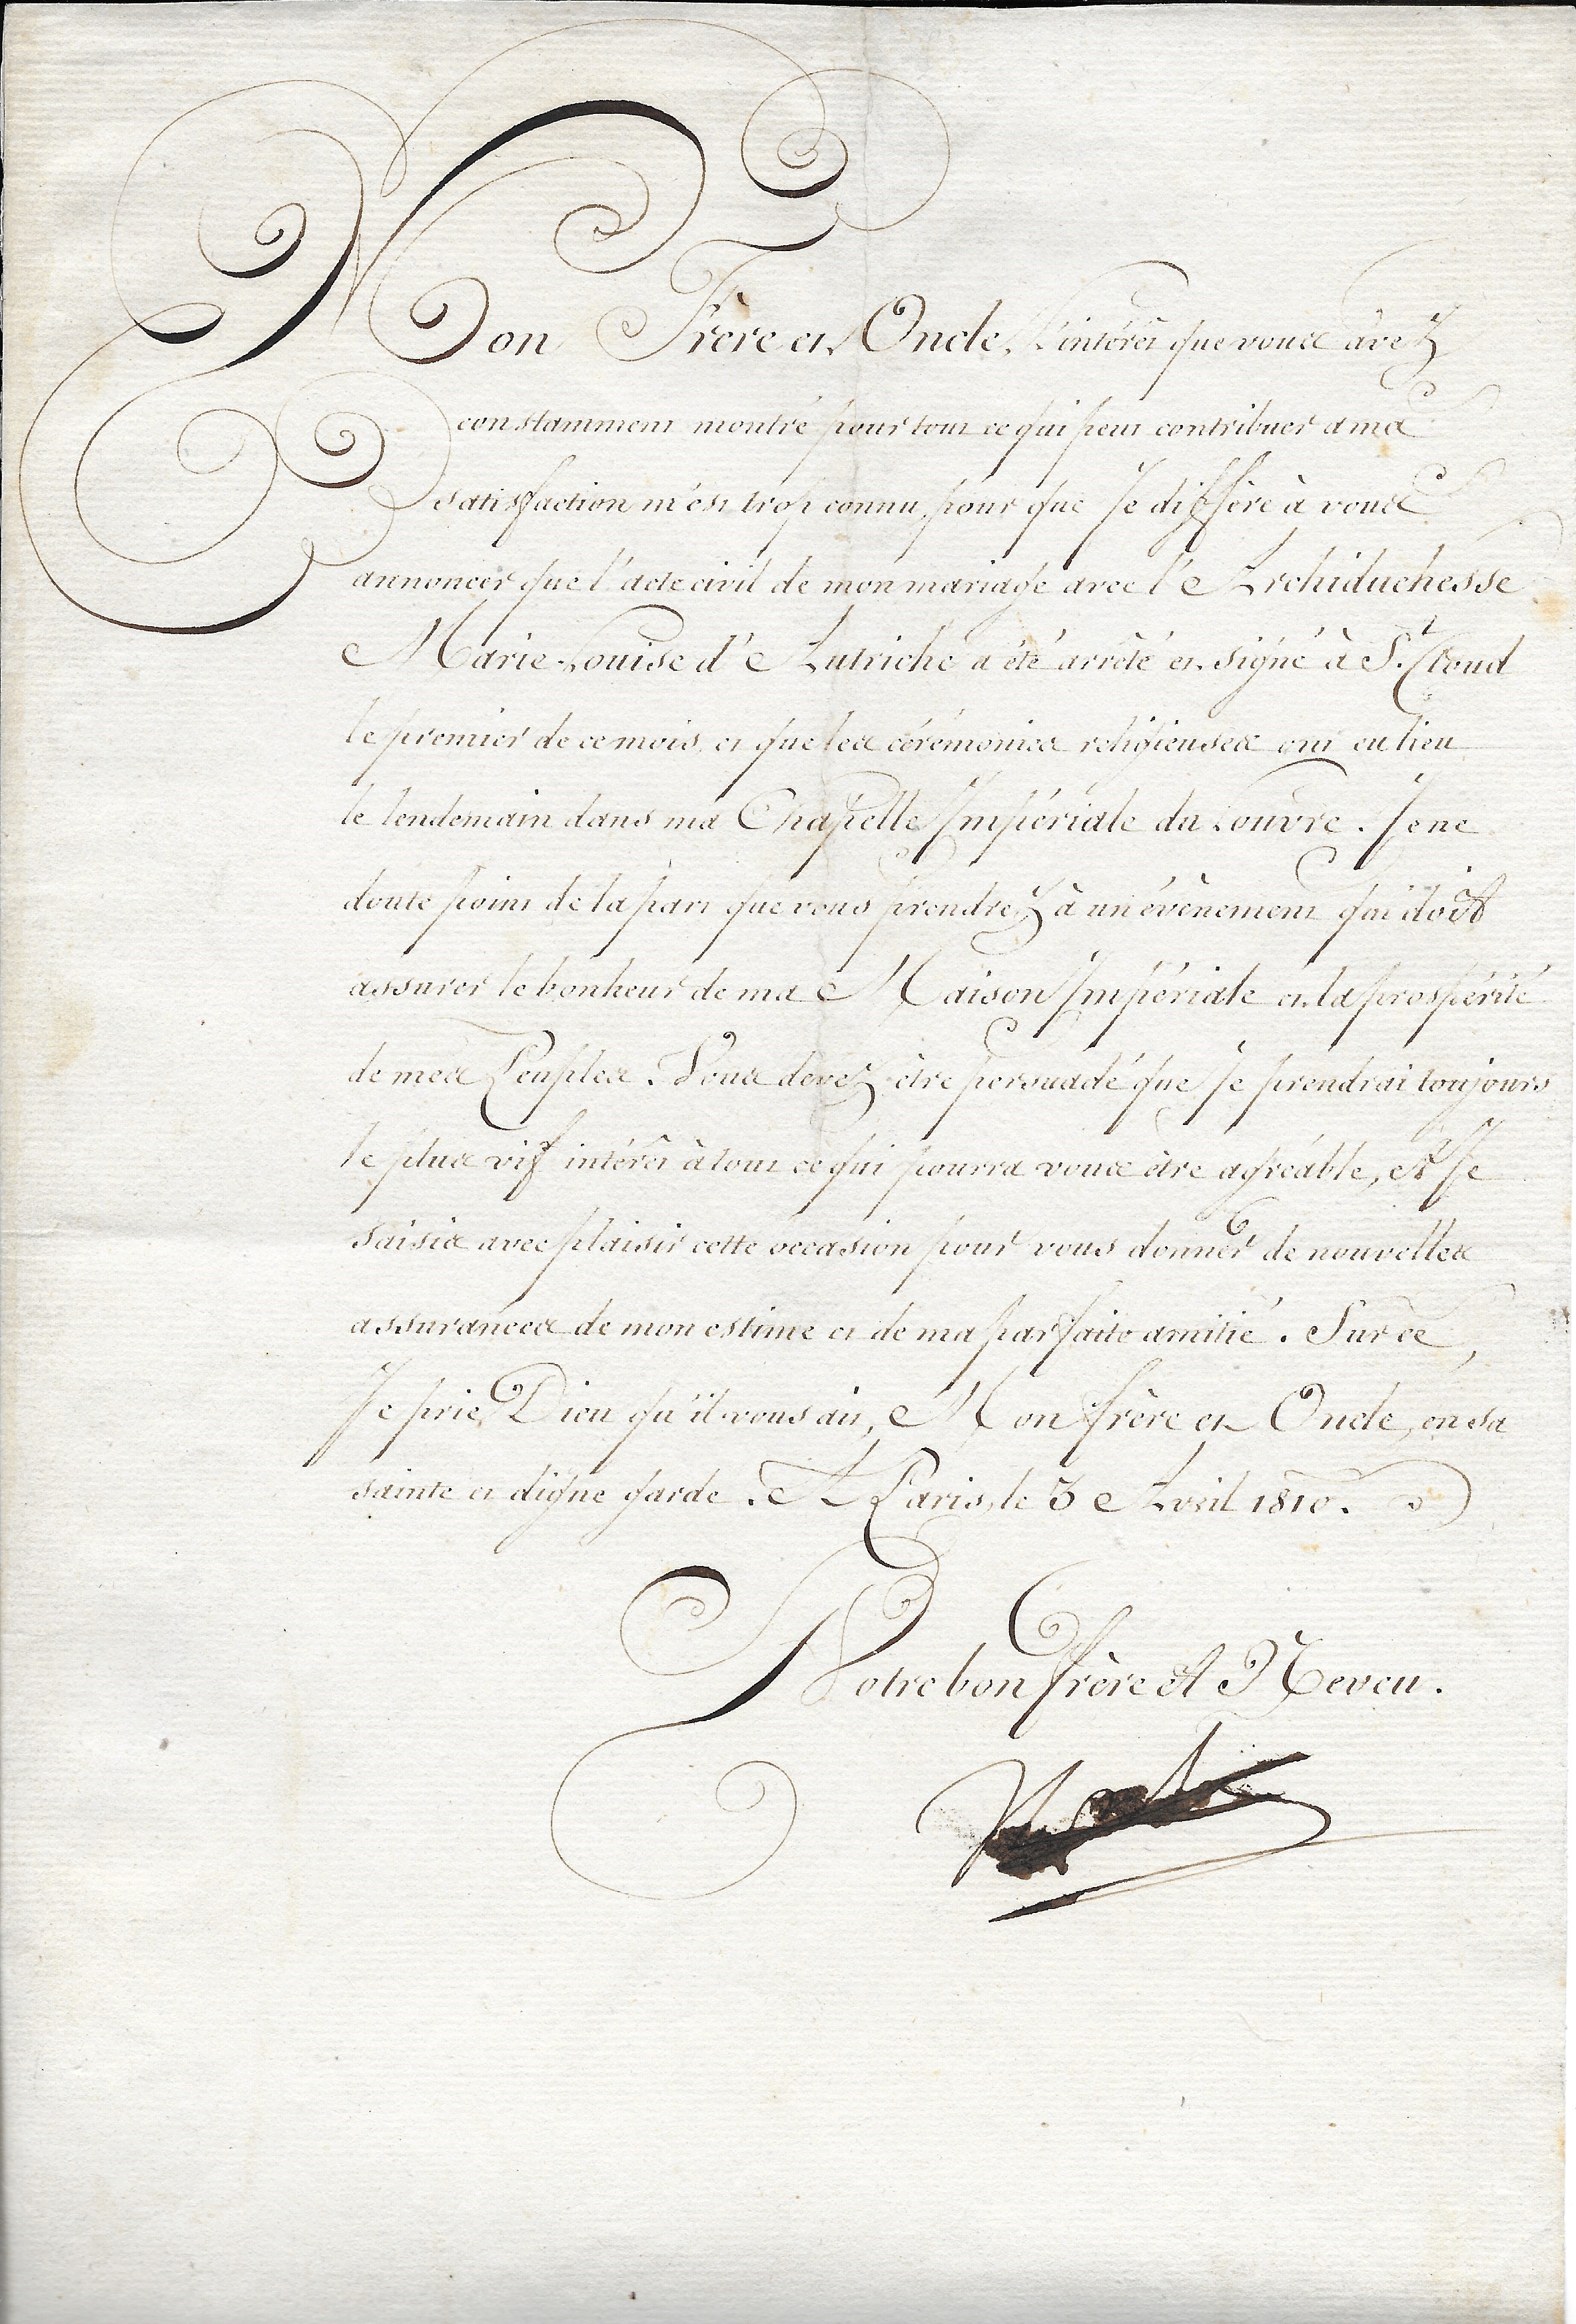 Mon Frère et Oncle, L'intérêt que vous avez
constamment montré pour tout ce qui peut contribuer à ma
satisfaction m'est trop connu, pour que Je diffère à vous
annoncer que l'acte civil de mon mariage avec l'Archiduchesse
Marie-Louise d'Autriche a été arrêté et signé à St. Cloud
le premier de ce mois, et que les cérémonies religieuses ont eu lieu
le lendemain dans ma Chapelle Impériale du Louvre. Je ne
doute point de la part que vous prendrez à un évènement qui doit
assurer le bonheur de ma Maison Impériale et la prospérité
de mes Peuples. Vous devez être persuadé que Je prendrai toujours
le plus vif intérêt à tout ce qui pourra vous être agréable, et Je
saisis avec plaisir cette occasion pour vous donner de nouvelles
assurances de mon estime et de ma parfaite amitié. Sur ce,
Je prie Dieu qu'il vous ait, Mon frère et Oncle, en sa
sainte et digne garde. A Paris, le 3 Avril 1810.
Votre bon frère et Neveu.